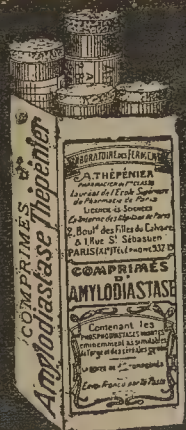 COMPRIMÉS d'
Amylodiastase Thépénier
LABORATOIRE DES FERMENTS
A. THÉPÉNIER
PHARMACIEN DE 1re CLASSE
Lauréat de l'École Supérieure
de Pharmacie de Paris
LICENCIÉ ÈS SCIENCES
Ex-Interne des Hôpitaux de Paris
2, Bould des Filles du Calvaire
& 1 Rue St Sébastien
PARIS (XIe) Téléphone
COMPRIMÉS
D'
AMYLODIASTASE
Contenant les
PHOSPHODIASTASES
éminemment assimilables
de l'orge et des céréales
Envoi Franco par la Poste